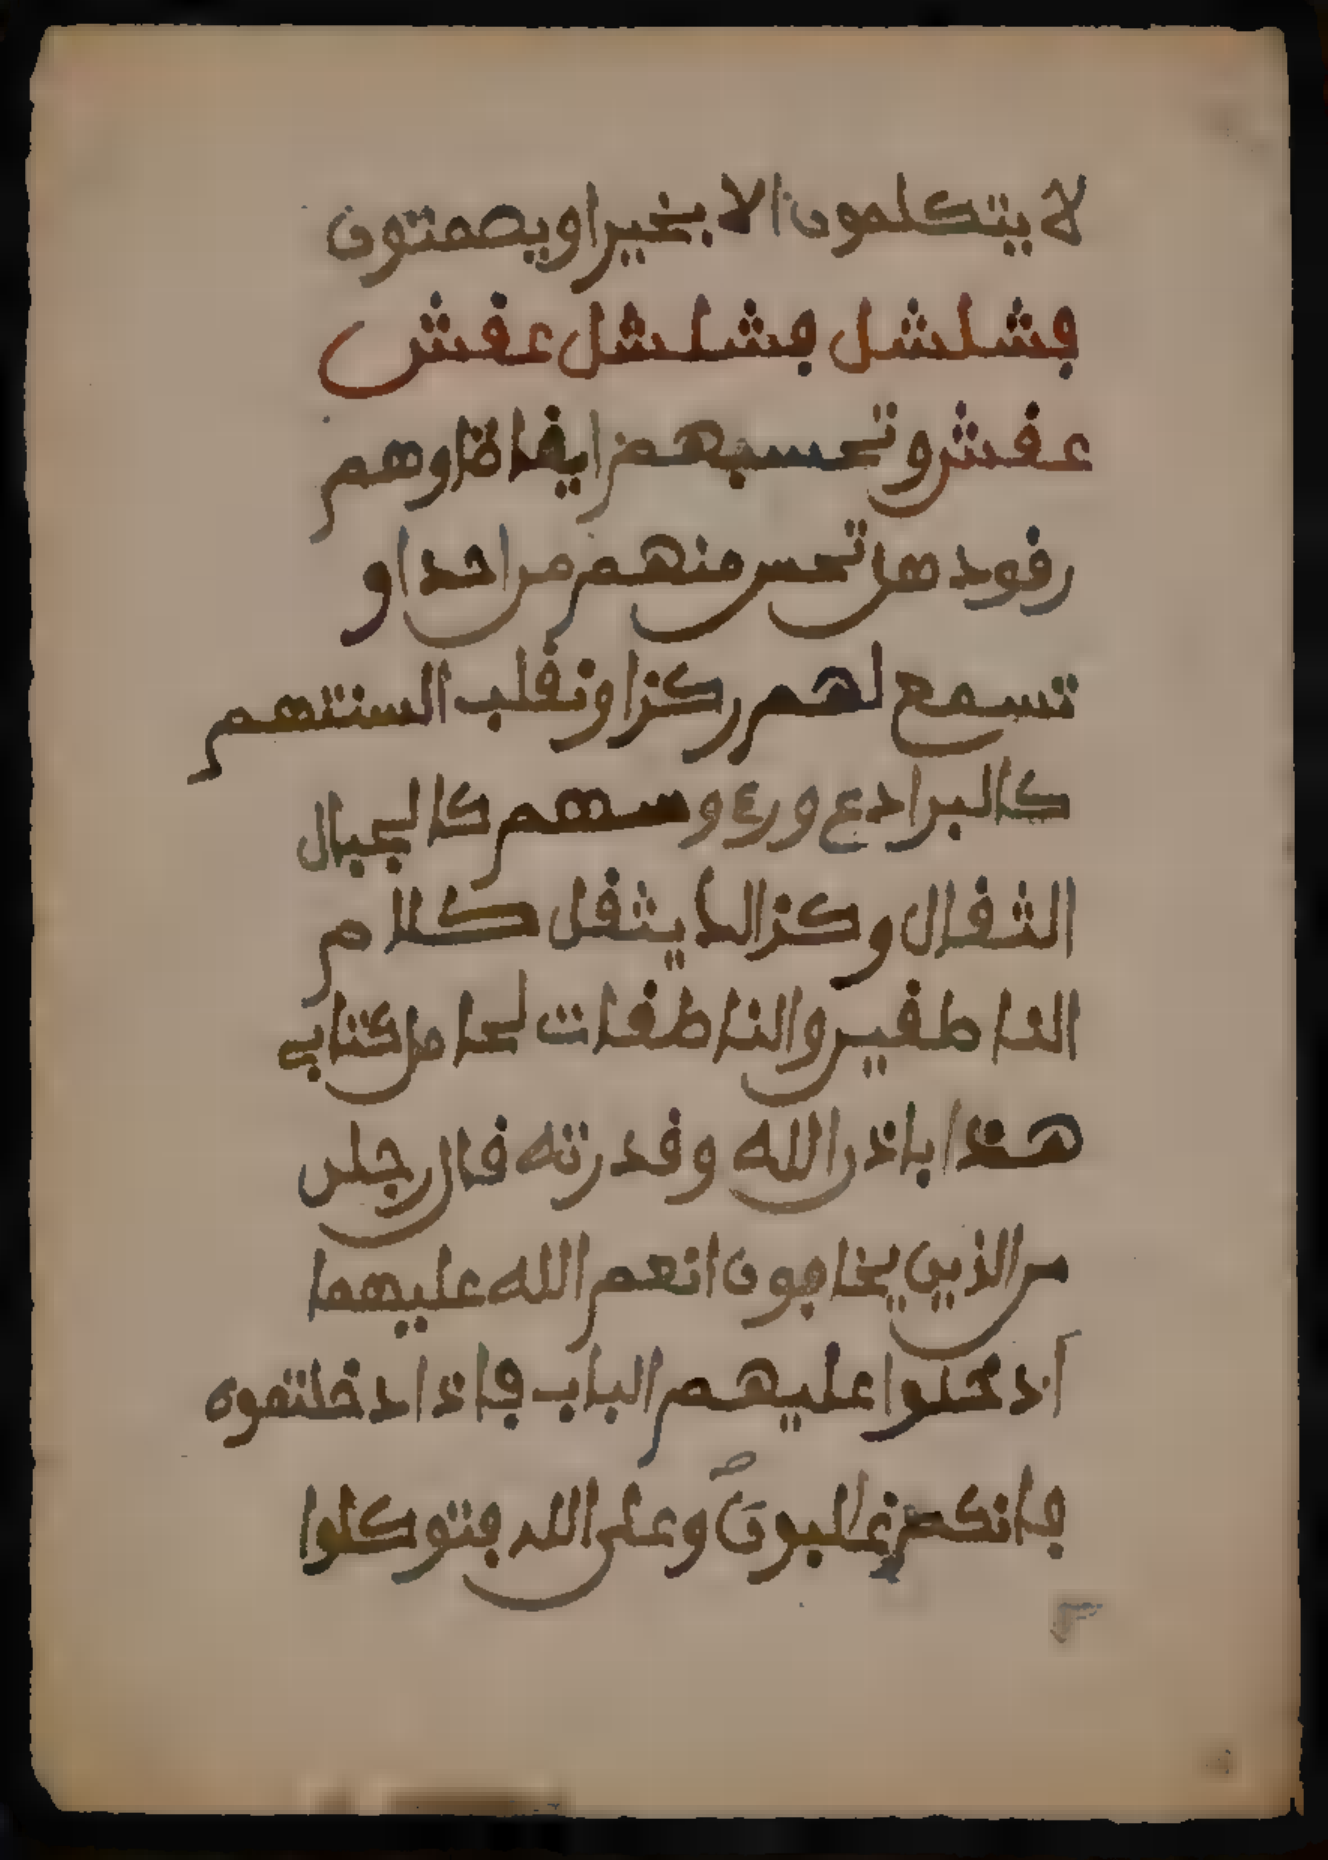 لا يتكلمون الا بخير او يصمتون
فشلشل فشلشل فشلشل عقش
عقش وتحسبهم ايقاظا وهم
رقود هل تحس منهم من احد او
تسمع لهم ركزا وتقلب السنتهم
كالبرادع ورءوسهم كالجبال
الثقال وكزالدا يثقل كلام
الناطقين والناطقات لحامل كتابي
هذا باذن الله وقدرته قال رجلن
من الذين يخافون انعم الله عليهما
ادخلوا عليهم الباب فاذا دخلتموه
فانكم غلبون وعلى الله فتوكلوا